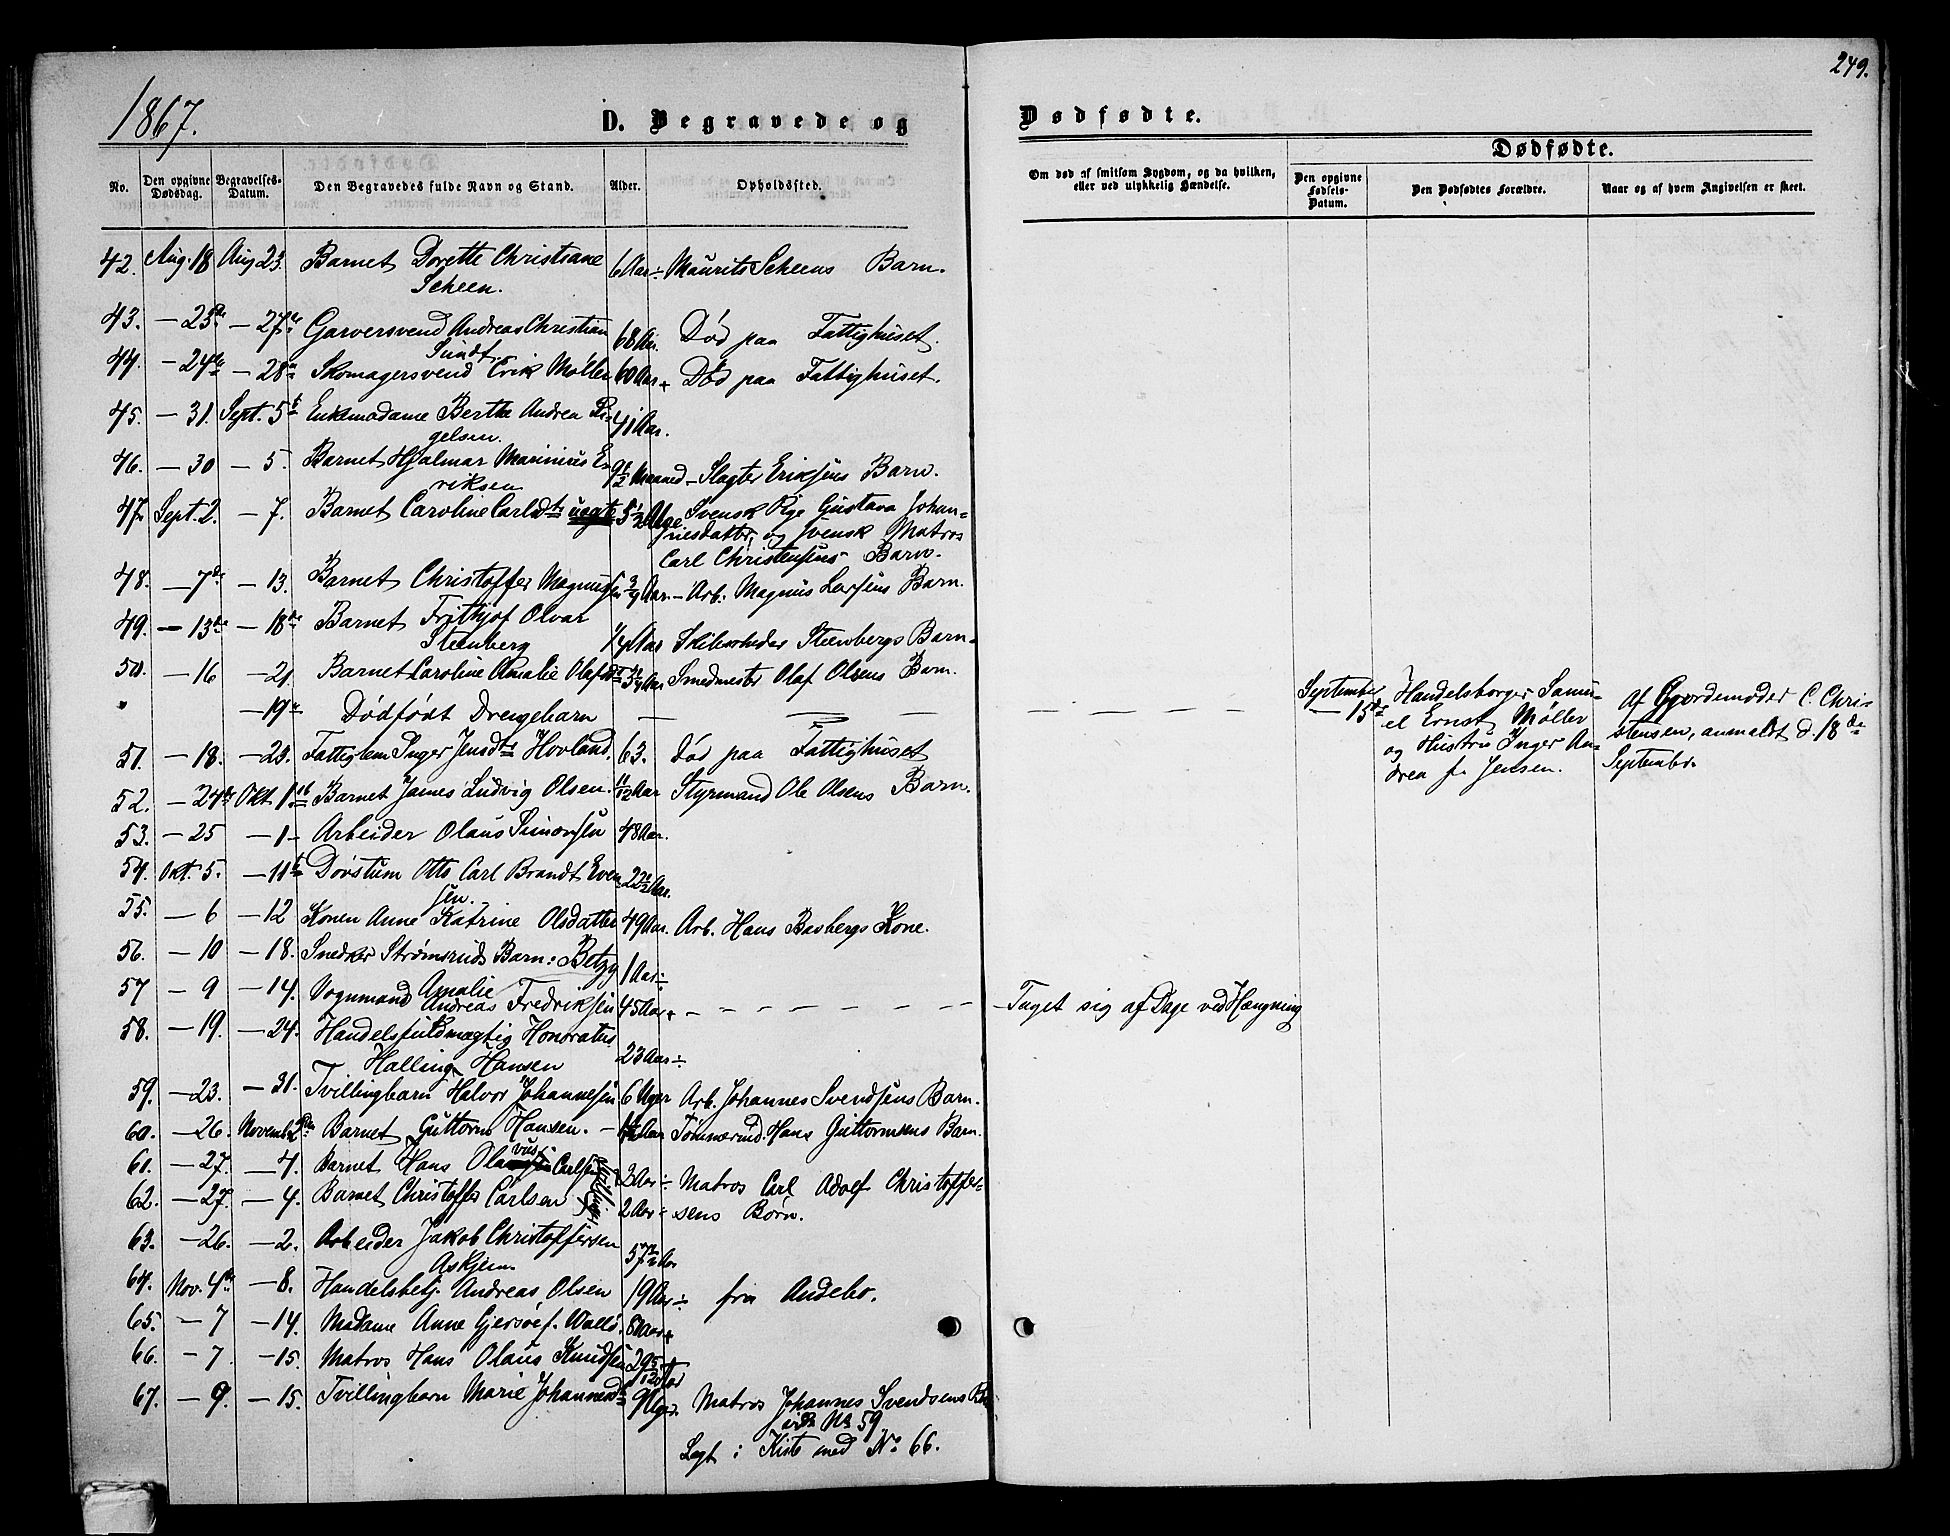 1867.
D. Begravede og
Dødfødte.
249.
No.
Den opgivne Dødsdag.
Begravelses-Datum.
Den Begravedes fulde Navn og Stand.
Alder.
Opholdsted.
Om død af smitsom Sygdom, og da hvilken, eller ved ulykkelig Hændelse.
Dødfødte.
Den opgivne Fødsels-Datum.
Den Dødfødtes Forældre.
Naar og af hvem Angivelsen er skeet.
42. Aug. 18 Aug 23. Barnet Dorette Christiane 6 Aar ÷ Maurits Scheens Barn.
Scheen.
43. — 23de — 27de Garversvend Andreas Christian 68 Aar. Død paa Fattighuset.
Sundt.
44. — 24de — 28de Skomagersvend Erik Møller 60 Aar + Død paa Fattighuset.
45. — 31. Sept. 5te Enkemadame Berthe Andrea 41 Aar.
gelsen.
46. — 30 — 5. Barnet Hjalmar Marinius E- 9½ Maaned — Slagter Eriksens Barn.
riksen
47. Sept. 2. — 7. Barnet Caroline Carlsdtr uægte 5½ Uge. Svensk Pige Gustava Johan-
nesdatter, og svensk Matros
Carl Christensens Barn.
48. — 7de — 13. Barnet Christoffer Magnussen ¾ Aar. — Arb. Magnus Larsens Barn.
49. — 13de — 18de Barnet Frithjof Olvar
Steenberg ¼ Aar Skibsrheder Steenbergs Barn —
50. — 16 — 21. Barnet Caroline Amalie Olafsdtr Aar Smedmester Olaf Olsens Barn.
" — 19de Dødfødt Drengebarn — — — — — — — — — September Handelsborger Samu- Af Gjordemoder C. Chri-
— 15de el Ernst Møller stensen, anmeldt d. 18de
og Hustru Inger An- September.
drea f. Jensen.
51. — 18. — 23. Fattiglem Inger Jensdtr Hovland. 63. Død paa Fattighuset
52. — 24de Okt 1ste Barnet James Ludvig Olsen. 11/12 Aar Styrmand Ole Olsens Barn.
53. — 25 — 1 — Arbeider Olaus Simonsen 48 Aar.
54. Okt. 5. — 11te Døvstum Otto Carl Brandt Even 22½ Aar.
sen.
55. — 6 — 12 Konen Anne Katrine Olsdatter 49 Aar. Arb. Hans Basbergs Kone.
56. — 10 — 18. Snedker Strømsruds Barn: Betzy 1 Aar ÷
Amalie
57 — 9 — 14. Vognmand Andreas Fredriksen 45 Aar + — — — — — — Taget sig af Dage ved Hængning
58. — 19. — 24. Handelsfuldmægtig Honoratus
Halling Hansen 23 Aar ÷
59. — 23. — 31. Tvillingbarn Halvor Johannesen 6 Uger Arb. Johannes Svendsens Barn.
60. — 26. Novemb. 2den Barnet Guttorm Hansen. — Aar Tømmermd. Hans Guttormsens Barn.
61. — 27. — 4. Barnet Hans Olavus Carlsen 2 Aar ÷ Matros Carl Adolf Christoffer-
62. — 27. — 4. Barnet Christoffer Carlsen 2 Aar ÷ sens Børn.
Tvillinger
63. — 26. — 2. Arbeider Jakob Christoffersen
Askjem 57½ Aar
64. Nov. 4de — 8. Handelsbetj. Andreas Olsen 19 Aar ÷ fra Andebo.
65. — 7 — 14. Madame Anne Gjersøe f. Wølls. 80 Aar +
66. — 7 — 15. Matros Hans Olaus Knudsen 29 5/12 Aar
67. — 9. — 15. Tvillingbarn Marie Johannesdtr 9 Uger. Matros Johannes Svendsens
vide No 59.
Lagt i Kiste med No 66.